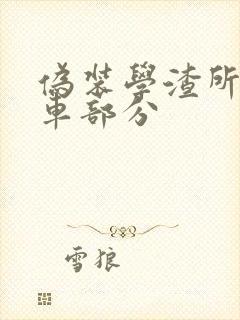 偽裝學渣所
車部分
雪狼